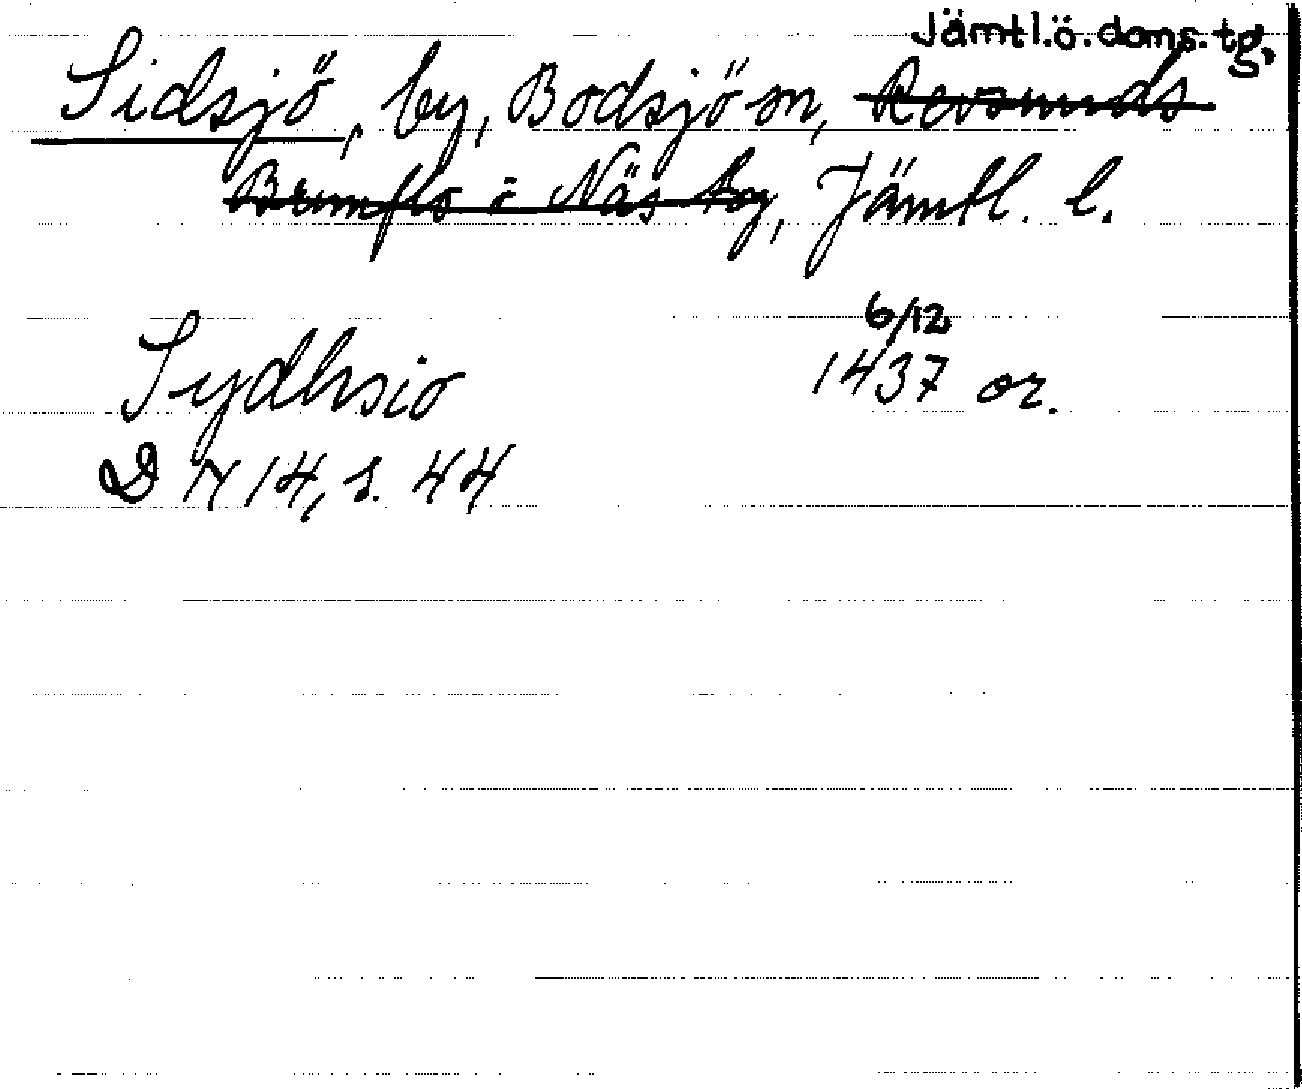 Jämtl.ö.doms.tg,
Sidsjö, by, Bodsjö sn, Revsunds
Brunflo o Näs tg, Jämtl. l.
6/12
Sydhsio 1437 or.
D 714, s. 44